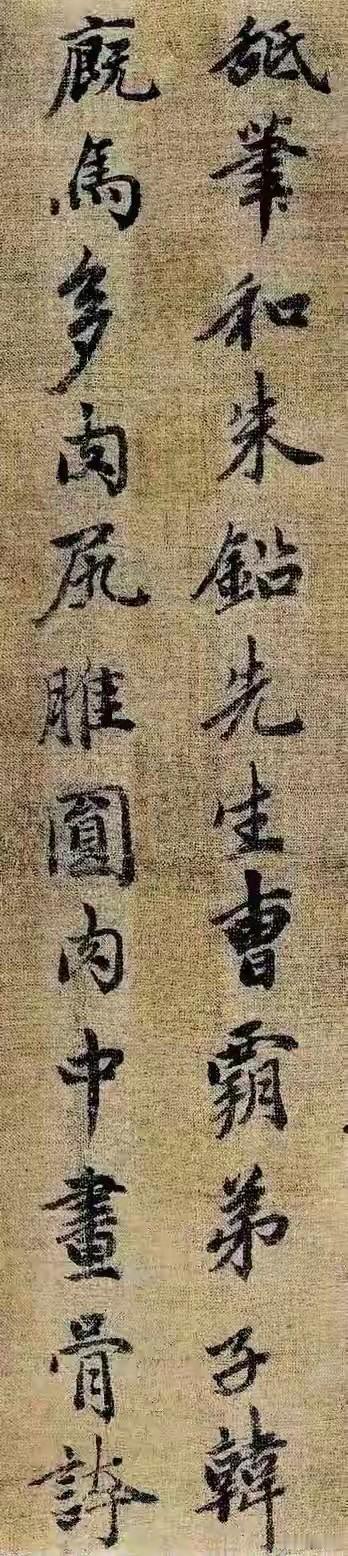 舐筆和朱鉛先生曹霸弟子韓
厩馬多肉尻脽圓肉中畫骨誇